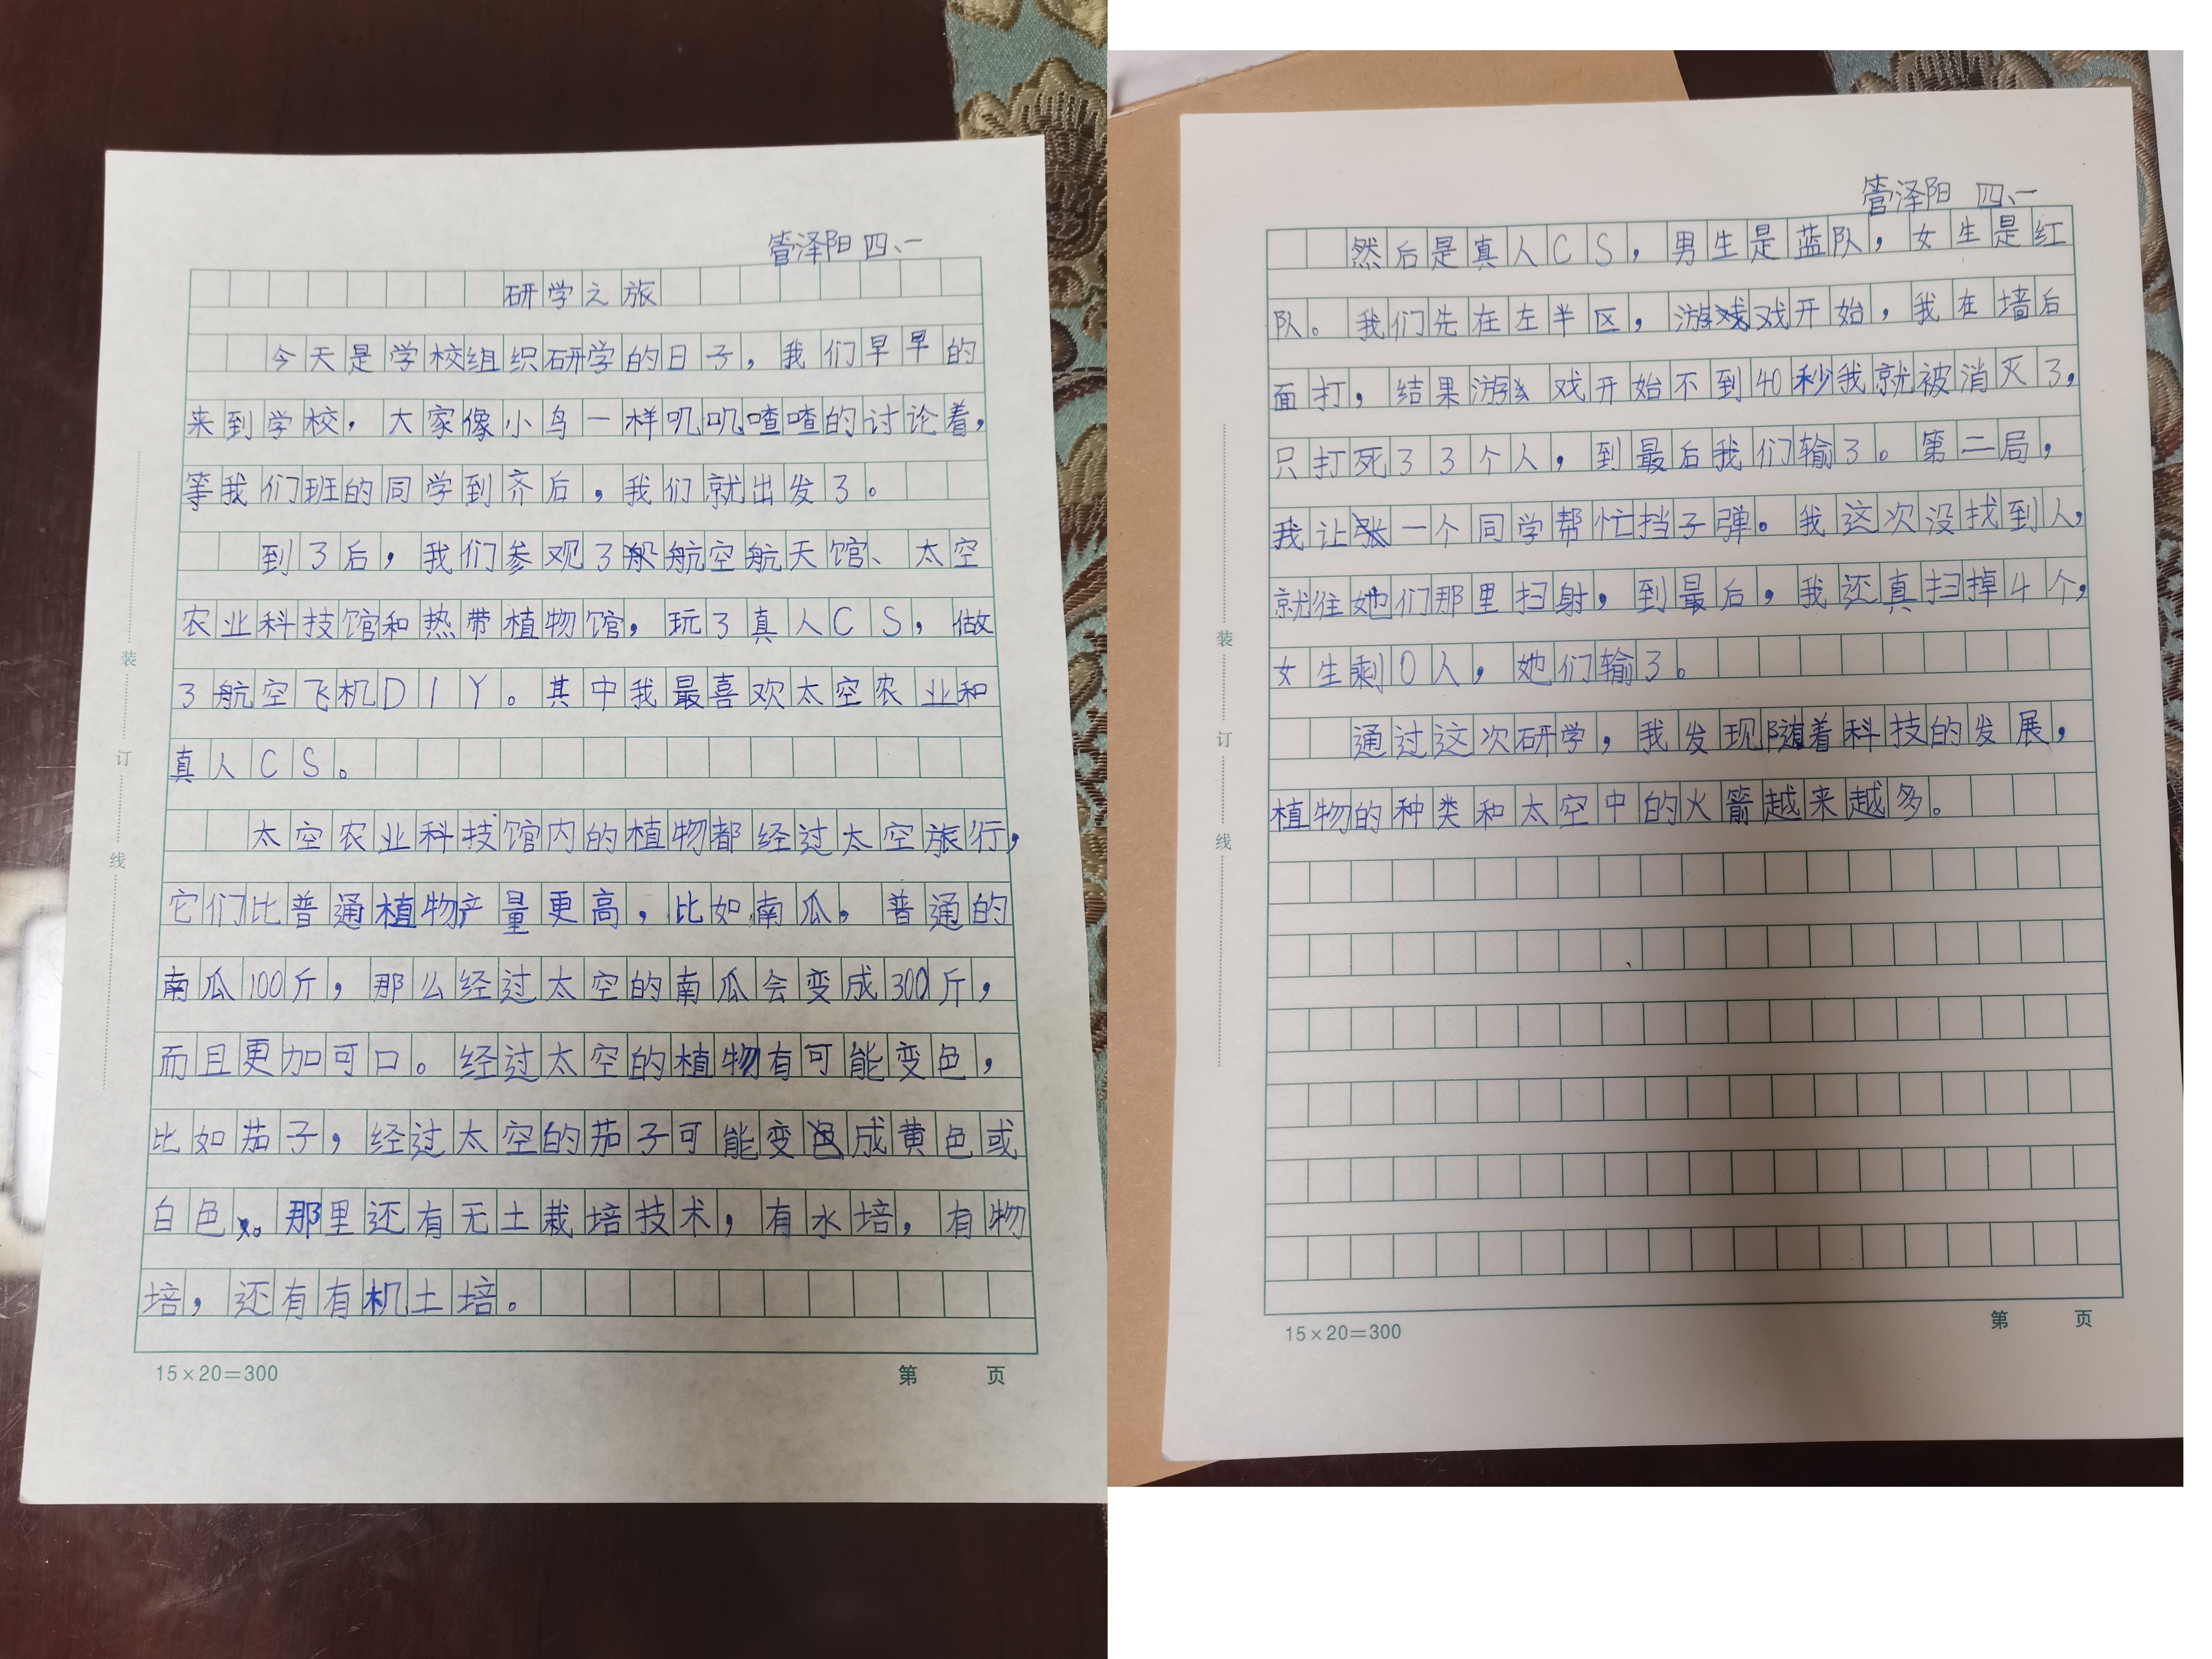 管泽阳 四、一
研学之旅
今天是学校组织研学的日子，我们早早的
来到学校，大家像小鸟一样叽叽喳喳的讨论着，
等我们班的同学到齐后，我们就出发了。
到了后，我们参观了航空航天馆、太空
农业科技馆和热带植物馆，玩了真人CS，做
了航空飞机DIY。其中我最喜欢太空农业和
真人CS。
太空农业科技馆内的植物都经过太空旅行，
它们比普通植物产量更高，比如南瓜，普通的
南瓜100斤，那么经过太空的南瓜会变成300斤，
而且更加可口。经过太空的植物有可能变色，
比如茄子，经过太空的茄子可能变成黄色或
白色。那里还有无土栽培技术，有水培，有物
培，还有有机土培。
装
订
线
15×20=300
第 页
管泽阳 四、一
然后是真人CS，男生是蓝队，女生是红
队。我们先在左半区，游戏开始，我在墙后
面打，结果游戏开始不到40秒我就被消灭了，
只打死了3个人，到最后我们输了。第二局，
我让一个同学帮忙挡子弹。我这次没找到人，
就往她们那里扫射，到最后，我还真扫掉4个，
女生剩0人，她们输了。
通过这次研学，我发现随着科技的发展，
植物的种类和太空中的火箭越来越多。
装
订
线
15×20=300
第 页